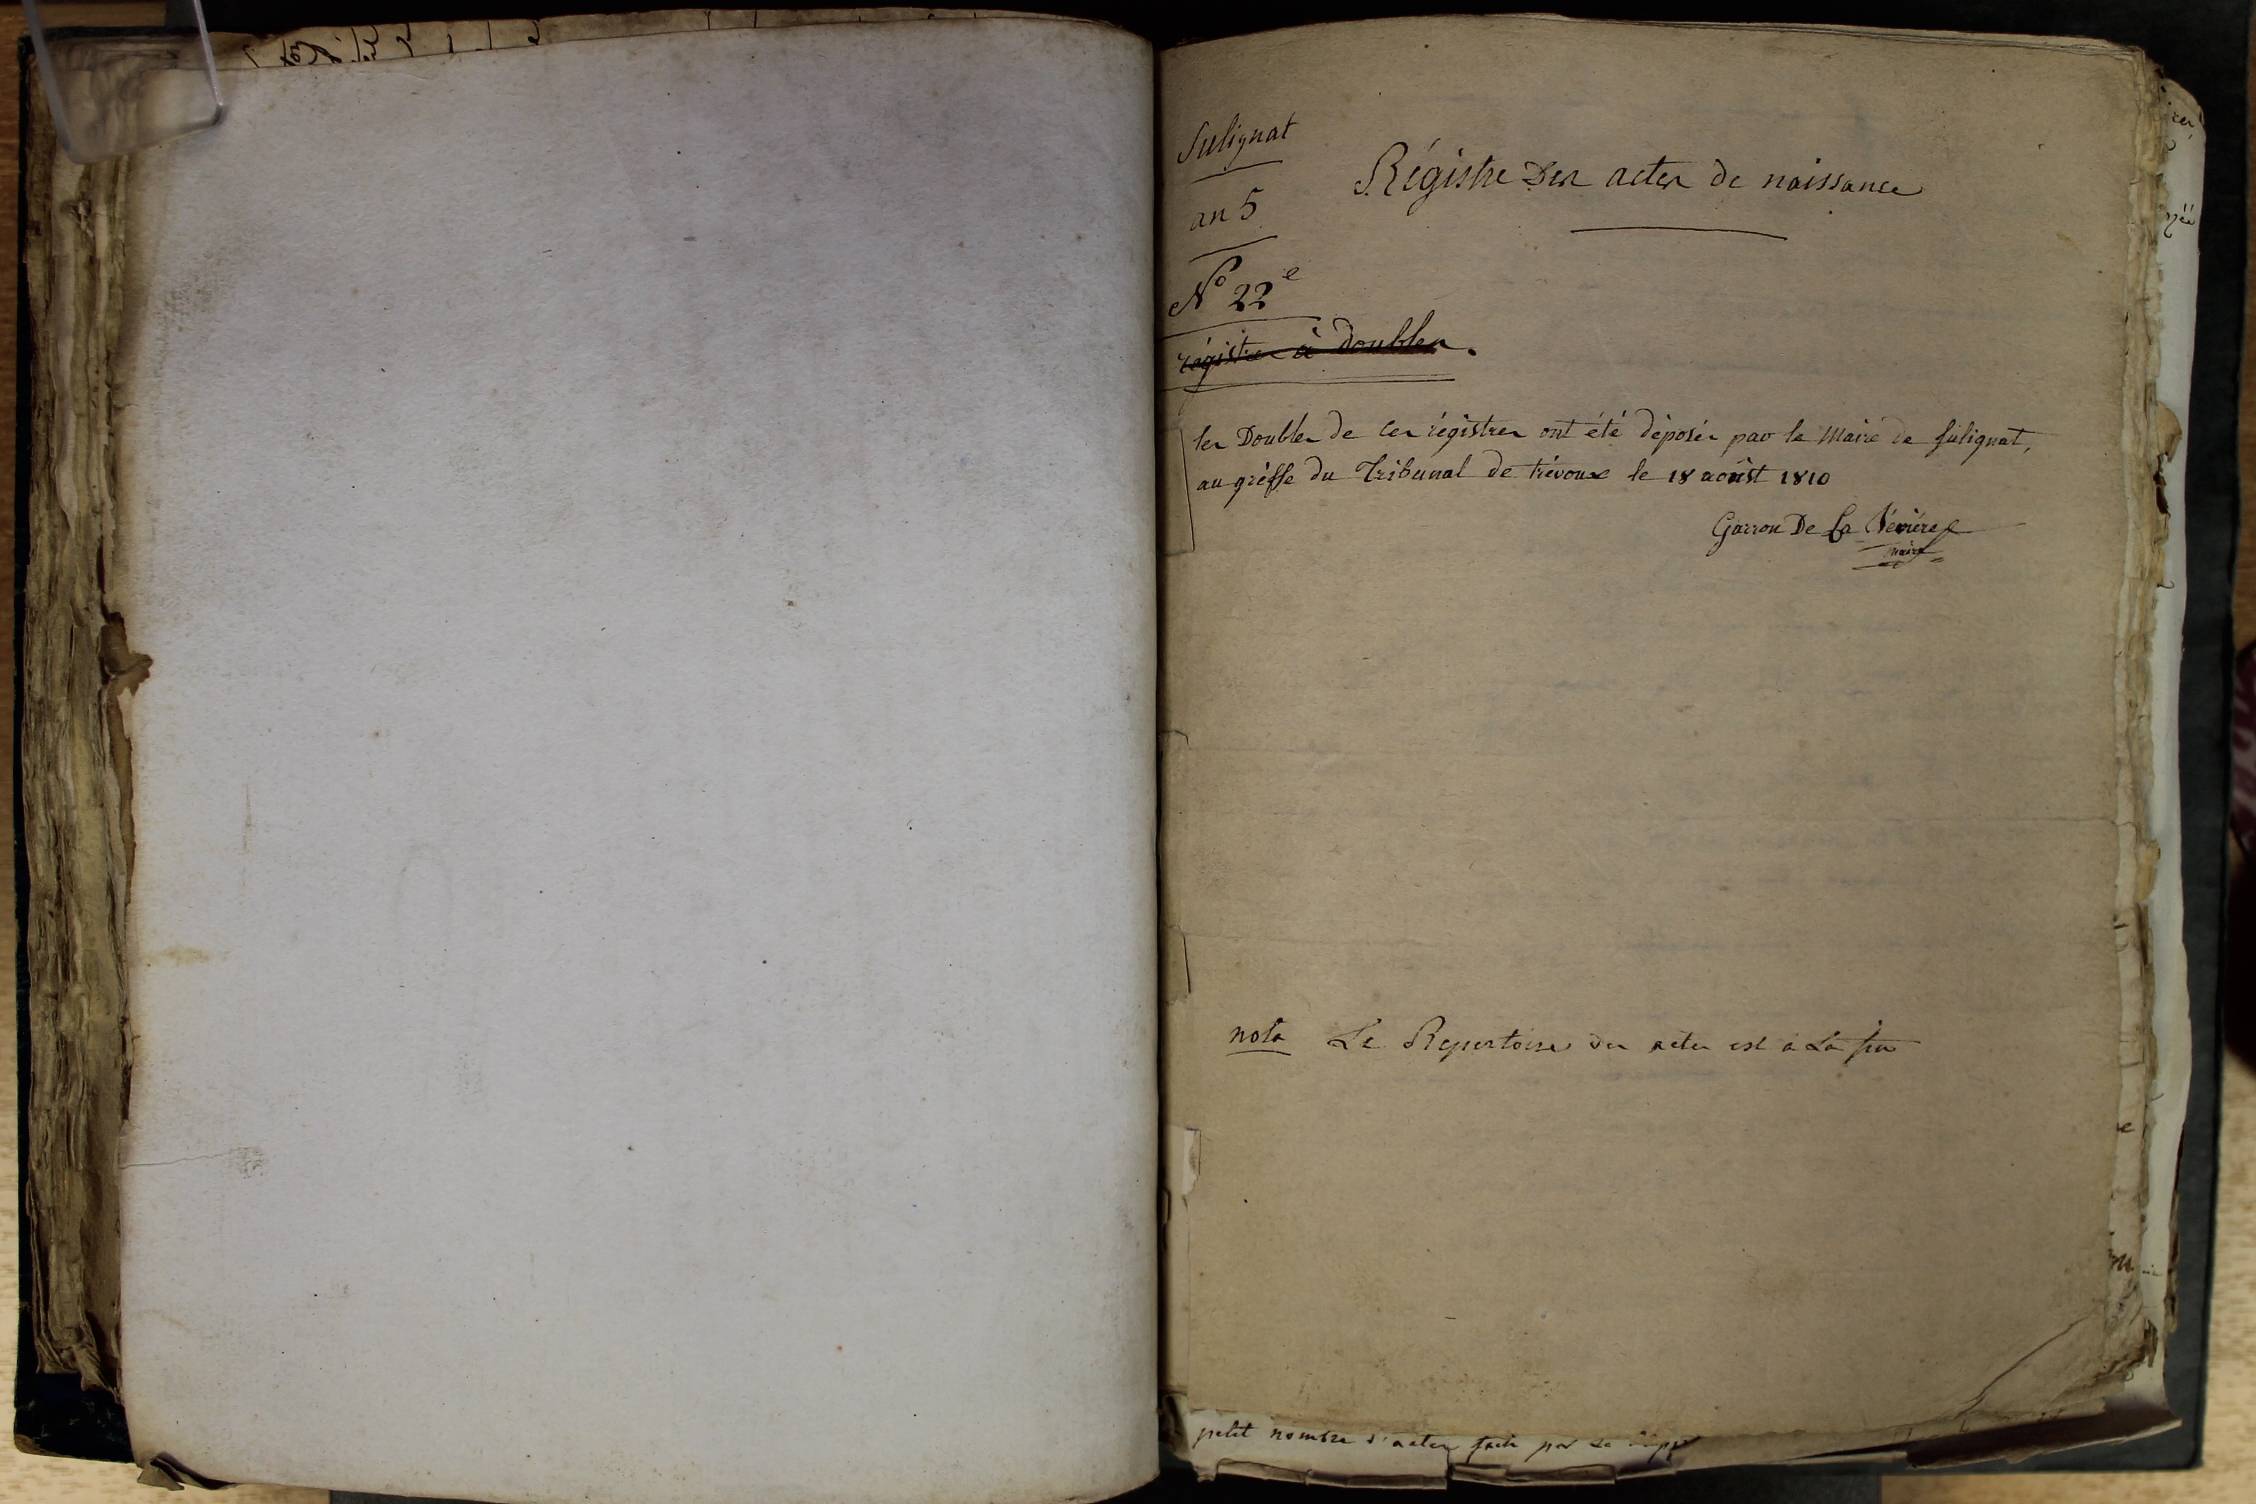 Sulignat
an 5
Nº 22e
Régistre Des actes de naissance
régistres à doubles.
les Doubles de ces régistres ont été déposés par le Maire de Sulignat,
au gréffe du Tribunal de trévoux le 18 aoûst 1810
Garron De La Bévière
maire
nota Le Repertoire des actes est à La fin
petit nombre d'actes faits par le